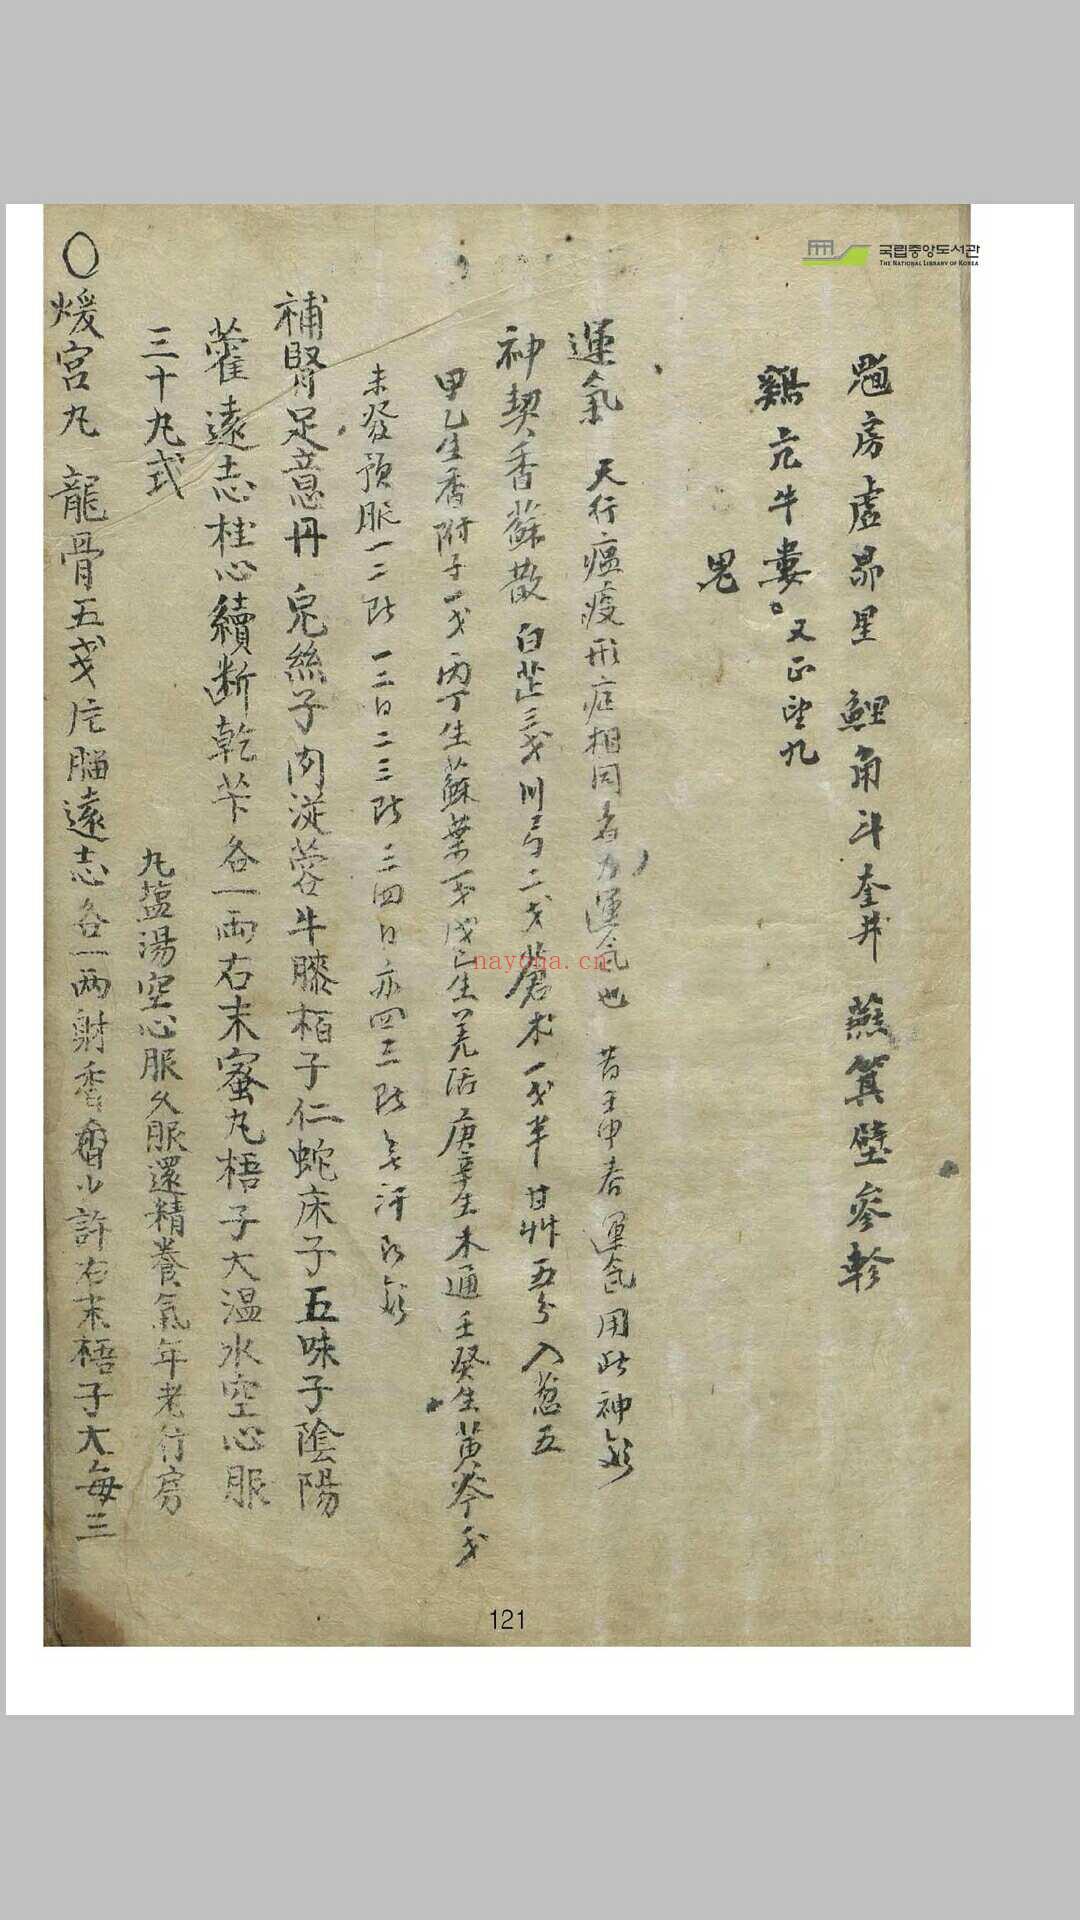 국립중앙도서관
THE NATIONAL LIBRARY OF KOREA
房虛昴星 鯉角斗奎井 燕箕壁參軫
鷄亢牛婁 又正望九
鬼
運氣 天行瘟疫形症相同者乃運氣也 昔壬申春運氣用此神
神契香蘇散 白芷三戔川弓二戔蒼朮一戔半甘艸五分入葱五
甲乙生香附子一戔丙丁生蘇葉一戔戊己生羌活庚辛生木通壬癸生黃芩戔
未發預服一二貼一二日二三貼三四日亦四三貼 汗
補腎足意丹 兎絲子肉從蓉牛膝栢子仁蛇床子五味子陰陽
藿遠志桂心續断乾芐各一兩右末蜜丸梧子大温水空心服
三十丸式 丸盐湯空心服久服還精養氣年老行房
〇煖宮丸 龍骨五戔片腦遠志各一两射香少許右末梧子大每三
nayona.cn
121